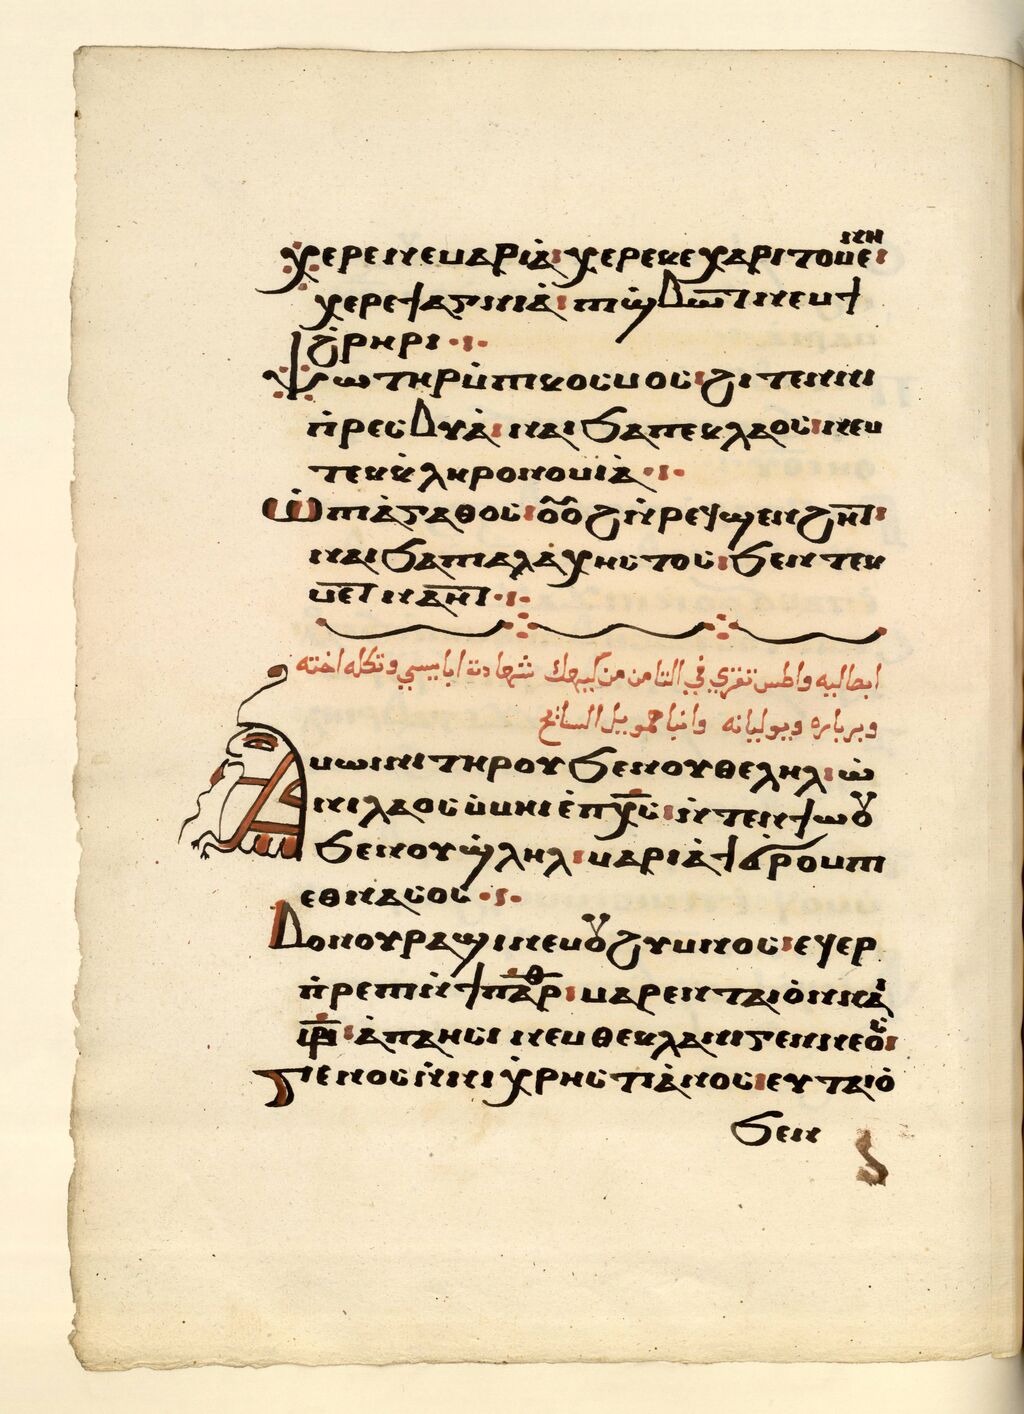 ⲭⲉⲣⲉ ⲛⲉ ⲙⲁⲣⲓⲁ̀: ⲭⲉⲣⲉ ⲕⲉⲭⲁⲣⲓⲧⲟⲙⲉⲛⲏ:
ⲭⲉⲣⲉ ϯⲁⲅⲓⲁ̀: ⲡϣⲱ̅ⲓ ⲛⲉⲙ ϯ
ϩⲣⲏⲣⲓ ·:·
Ⲥⲱⲧⲏⲣ ⲙ̀ⲡⲕⲟⲥⲙⲟⲥ: ϩⲓⲧⲉⲛ ⲛⲓ
ⲡ̀ⲣⲉⲥⲃⲩⲁ̀: ⲛⲁⲓ ϧⲁ ⲡⲉⲕⲗⲁⲟⲥ: ⲛⲉⲙ
ⲧⲉⲕⲕ̀ⲗⲏⲣⲟⲛⲟⲙⲓⲁ̀ ·:·
Ⲱ̀ ⲡⲓⲁ̀ⲅⲁⲑⲟⲥ: ⲟⲩⲟϩ ⲛ̀ⲣⲉϥϣⲉⲛϩⲏ̅ⲧ:
ⲛⲁⲓ ϧⲁ ⲡⲁⲗⲁⲭⲏⲥⲧⲟⲥ: ϧⲉⲛ ⲧⲉⲕ
ⲙⲉ̅ⲧⲛⲁⲏ̅ⲧ ·:·
ابصاليه واطس تقري في الثامن من كيهك شهادة ابا بيسي وتكله اخته
وبرباره ويوليانه وانبا صموييل السايح
Ⲁⲙⲱⲓⲛⲓ ⲧⲏⲣⲟⲩ ϧⲉⲛ ⲟⲩⲑⲉⲗⲏⲗ: ⲱ̀
ⲛⲓⲗⲁⲟⲥ ⲙ̀ⲙⲏⲓ ⲉ̀ⲡⲭ̅ⲥ: ⲛ̀ⲧⲉⲛϯⲱⲟⲩ
ϧⲉⲛ ⲟⲩϣ̀ⲗⲏⲗ: ⲙⲁⲣⲓⲁ̀ ϯϭ̀ⲣⲟⲙⲡ
ⲉⲑⲛⲁⲥⲟⲥ ·:·
Ⲃⲟⲛ ⲟⲩⲣⲁϣⲓ ⲛⲉⲙ ⲟⲩϩⲩⲙⲛⲟⲥ: ⲉϥⲉⲣ
ⲡ̀ⲣⲉⲡⲓ ⲛ̀ϯⲡⲁⲣⲑ: ⲙⲁⲣⲉⲛⲧⲁⲓⲟ̀ ⲛⲓⲕⲁ̀
ⲁ̀ⲡⲁ ⲏⲥⲓ ⲛⲉⲙ ⲑⲉⲕⲗⲁ ⲛⲓⲅⲉⲛⲛⲉⲟⲥ:
Ⲅⲉⲛⲟⲥ ⲛ̀ⲛⲓⲭ̀ⲣⲏⲥⲧⲓⲁ̀ⲛⲟⲥ: ⲉⲩⲧⲁⲓⲟ̀
ϧⲉⲛ